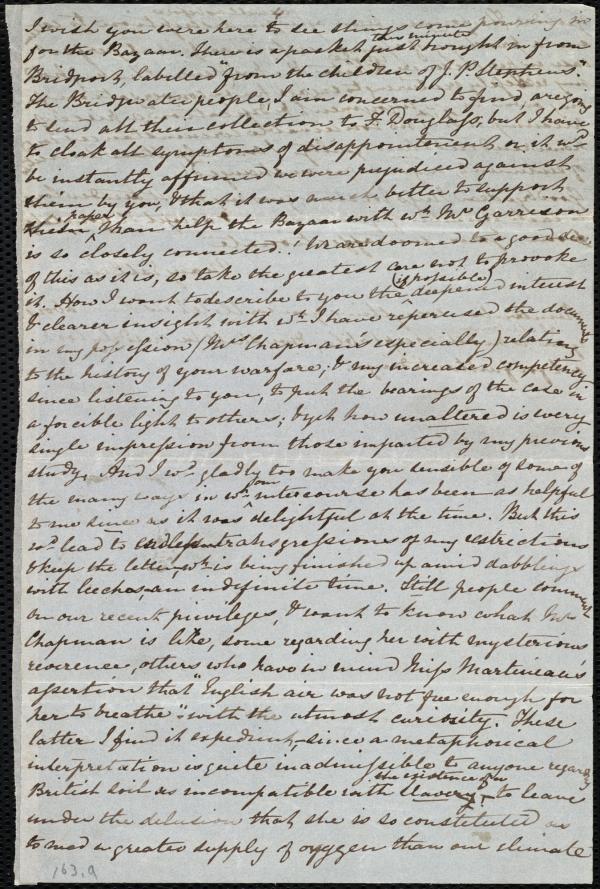 I wish you were here to see things come pouring in
for the Bazaar. There is a packet just this minute brought in from
Bridport, labelled "from the children of J. P. Stephens".
The Bridgwater people, I am concerned to find, are going
to send all their collection to F. Douglass, but I have
to cloak all symptoms of disappointment or it wd.
be instantly affirmed we were prejudiced against
them by you, & that it was much better to support
paper, than help the Bazaar with wh. Mr. Garrison
is so closely connected! We are doomed to a good deal
of this as it is, so take the greatest care not to provoke
it. How I want to describe to you the (if possible) deepened interest
& clearer insight with wh. I have reperused the documents
in my possession (Mrs. Chapman's especially) relating
to the history of your warfare, & my increased competency
since listening to you, to put the bearings of the case in
a forcible light to others; & yet how unaltered is every
single impression from those imparted by my previous
study. And I wd. gladly too make you sensible of some of
the many ways in wh. our intercourse has been as helpful
to me since as it was delightful at the time. But this
wd. lead to endless transgressions of my restrictions
& keep the letter, wh. is being finished up amid dabblings
with leeches, an indefinite time. Still people comment
on our recent privileges, & want to know what Mrs.
Chapman is like, some regarding her with mysterious
reverence, others who have in mind Miss Martineau's
assertion that "English air was not free enough for
her to breathe" with the utmost curiosity. These
latter I find it expedient, since a metaphorical
interpretation is quite inadmissible to anyone regarding
British soil as incompatible with the existence of a slavery, to leave
under the delusion that she is so constituted as
to need a greater supply of oxygen than our climate
163.9